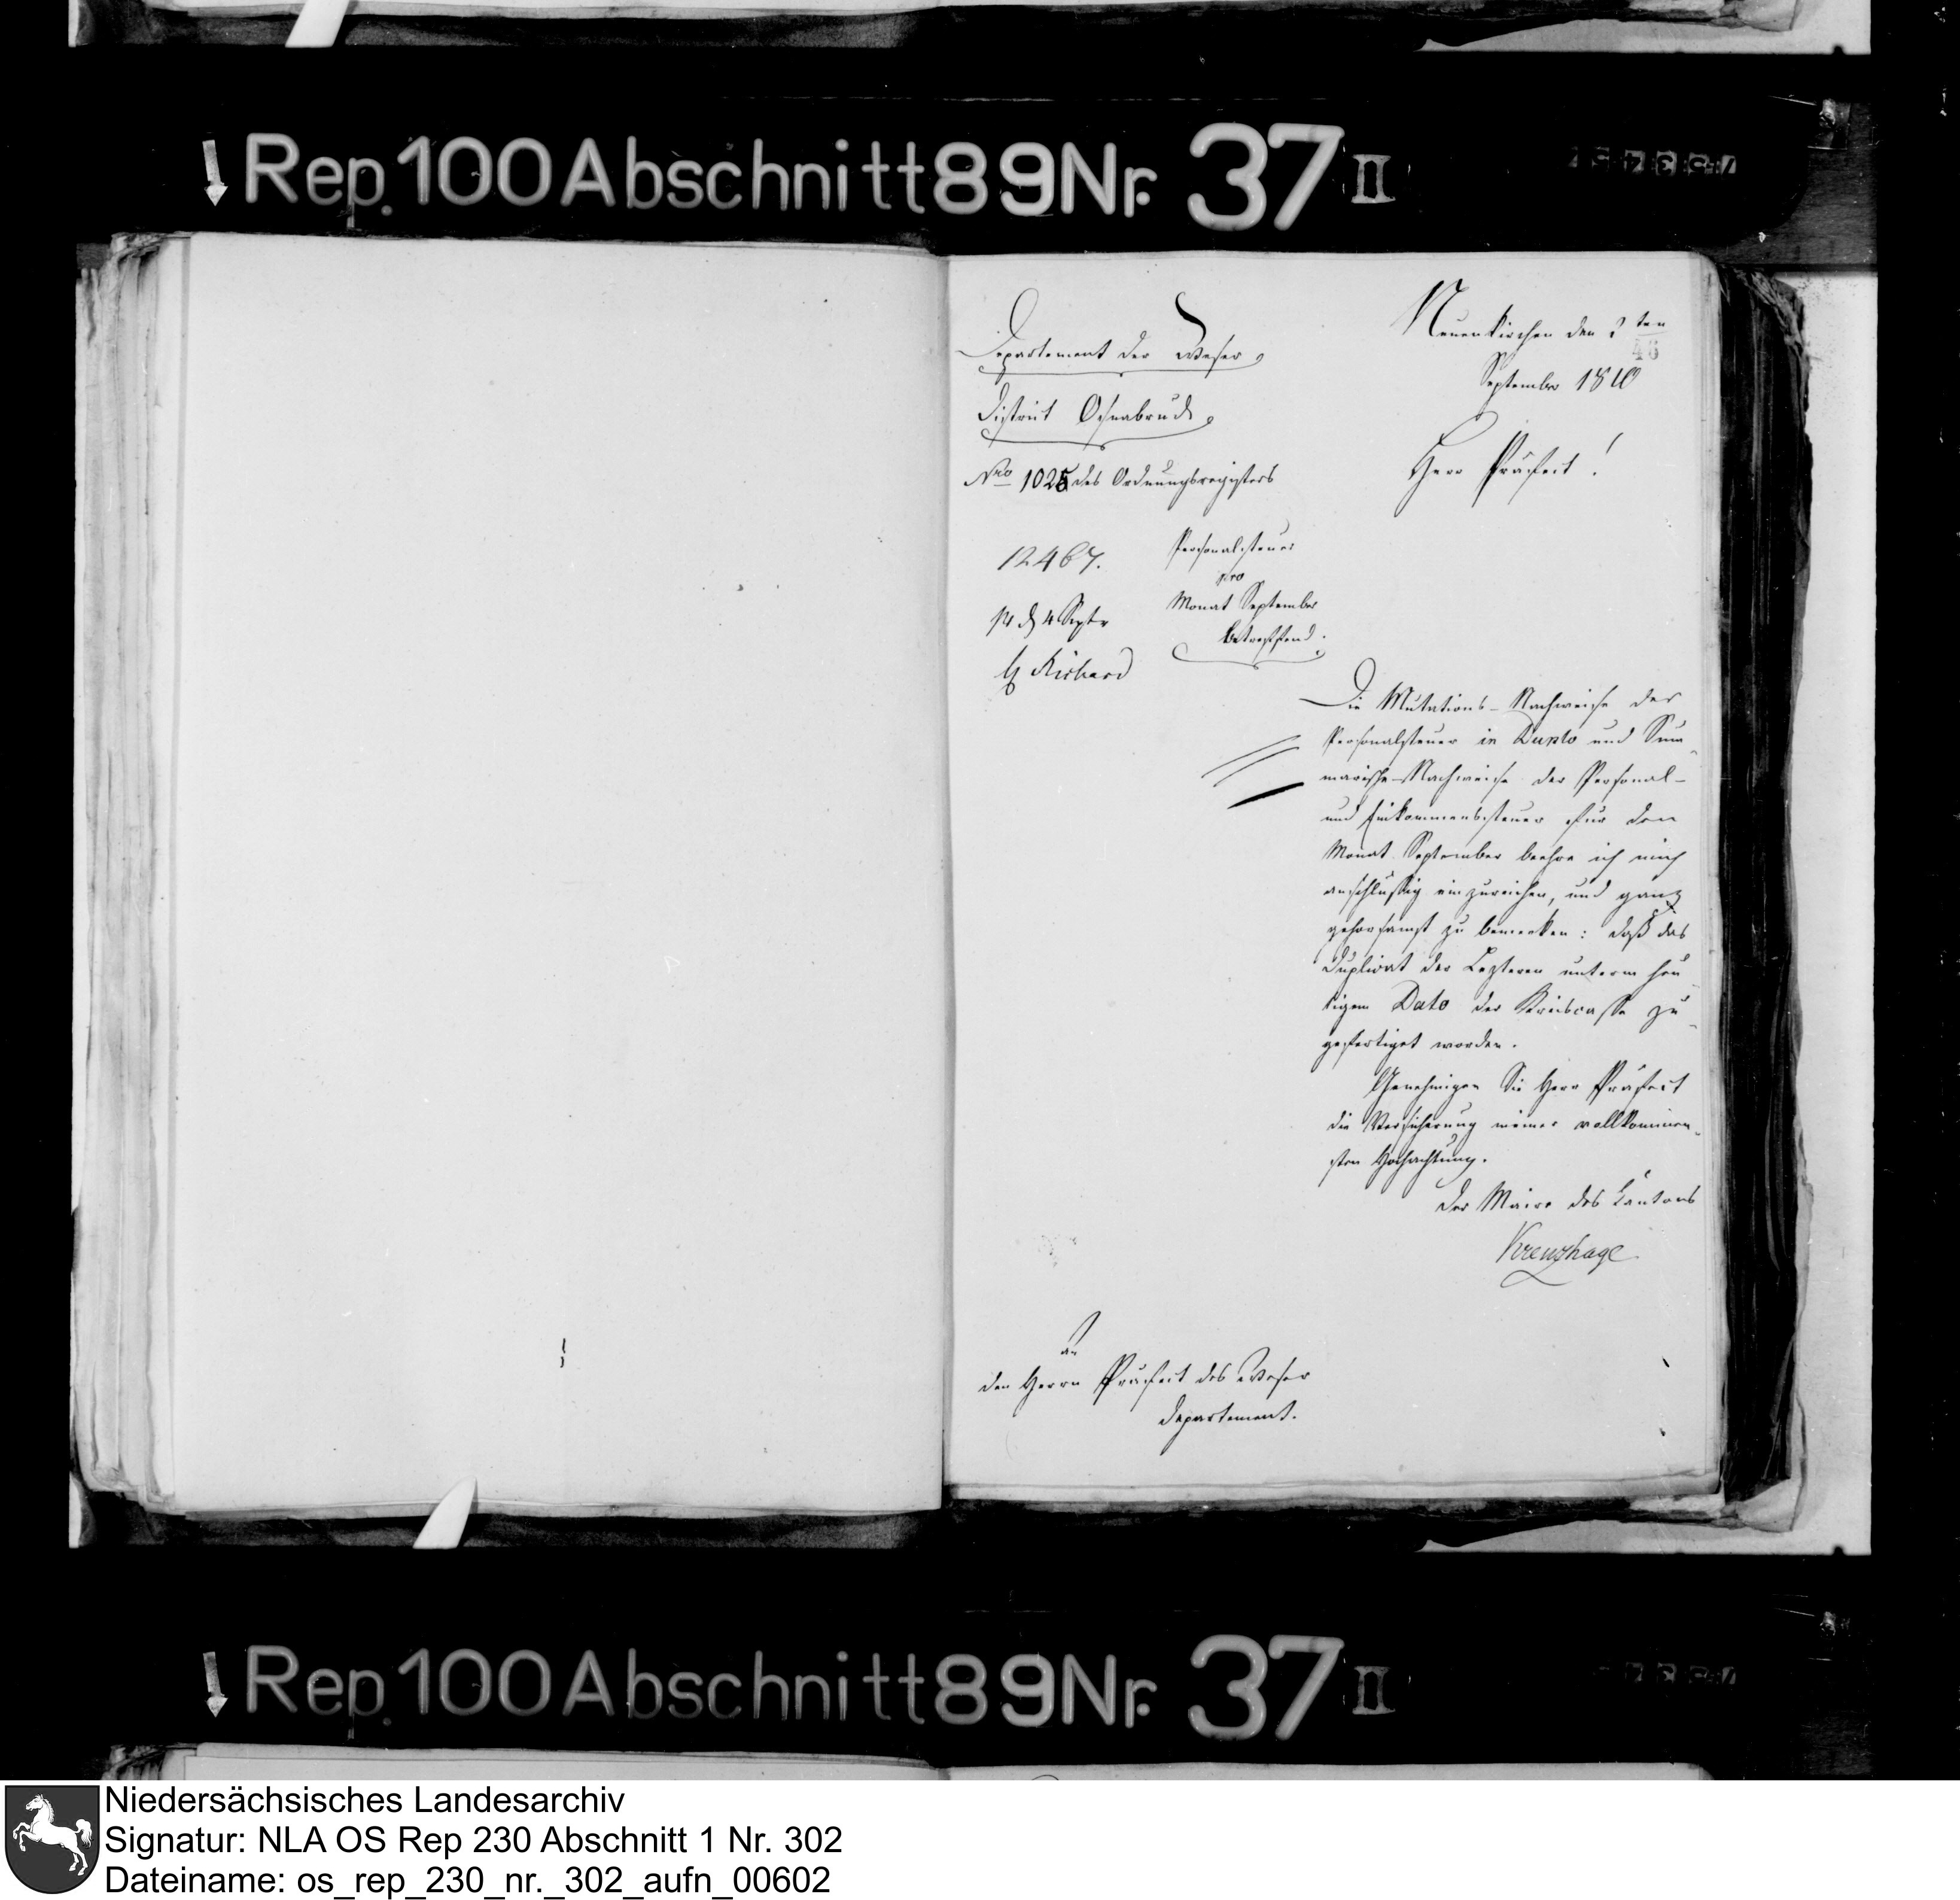 Rep. 100 Abschnitt 89 Nr. 37 II
Departement der Weser
District Osnabrück
Nro 1025 des Ordnungsregisters
12467.
pr d 4 Septr
Richard
Personalsteuer
pro
Monat September
betreffend.
Neuenkirchen den 2ten
46
September 1810
Herr Präfect!
Die Mutations-Nachweise der
Personalsteuer in Duplo und Sum-
marische-Nachweise der Personal-
und Einkommenssteuer für den
Monat September beehre ich mich
anschlüßig einzureichen, und ganz
gehorsamst zu bemerken: daß das
Duplicat der Lezteren unterm heu-
tigen Dato der Kreiscasse zu-
gefertiget worden.
Genehmigen Sie Herr Präfect
die Versicherung meiner vollkommen-
sten Hochachtung.
Der Maire des Cantons
Krenzhage
An
den Herrn Präfect des Weser
departement.
Rep. 100 Abschnitt 89 Nr. 37 II
Niedersächsisches Landesarchiv
Signatur: NLA OS Rep 230 Abschnitt 1 Nr. 302
Dateiname: os_rep_230_nr._302_aufn_00602